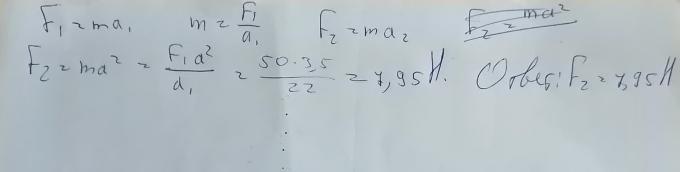 F₁ = ma₁ m = F₁/a₁ F₂ = ma₂ F₂ = ma²
F₂ = ma² = F₁a²/a₁ = 50·3,5/22 = 7,95 Н. Ответ: F₂ = 7,95 Н